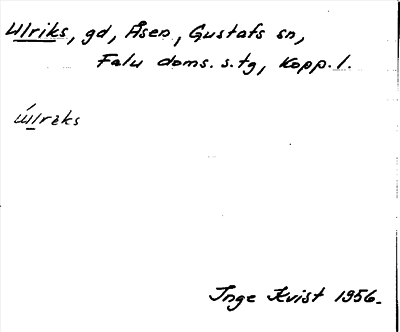 Ulriks, gd, Åsen, Gustafs sn,
Falu doms. s.tg, Kopp. l.
Úlrəks
Inge Kvist 1956.